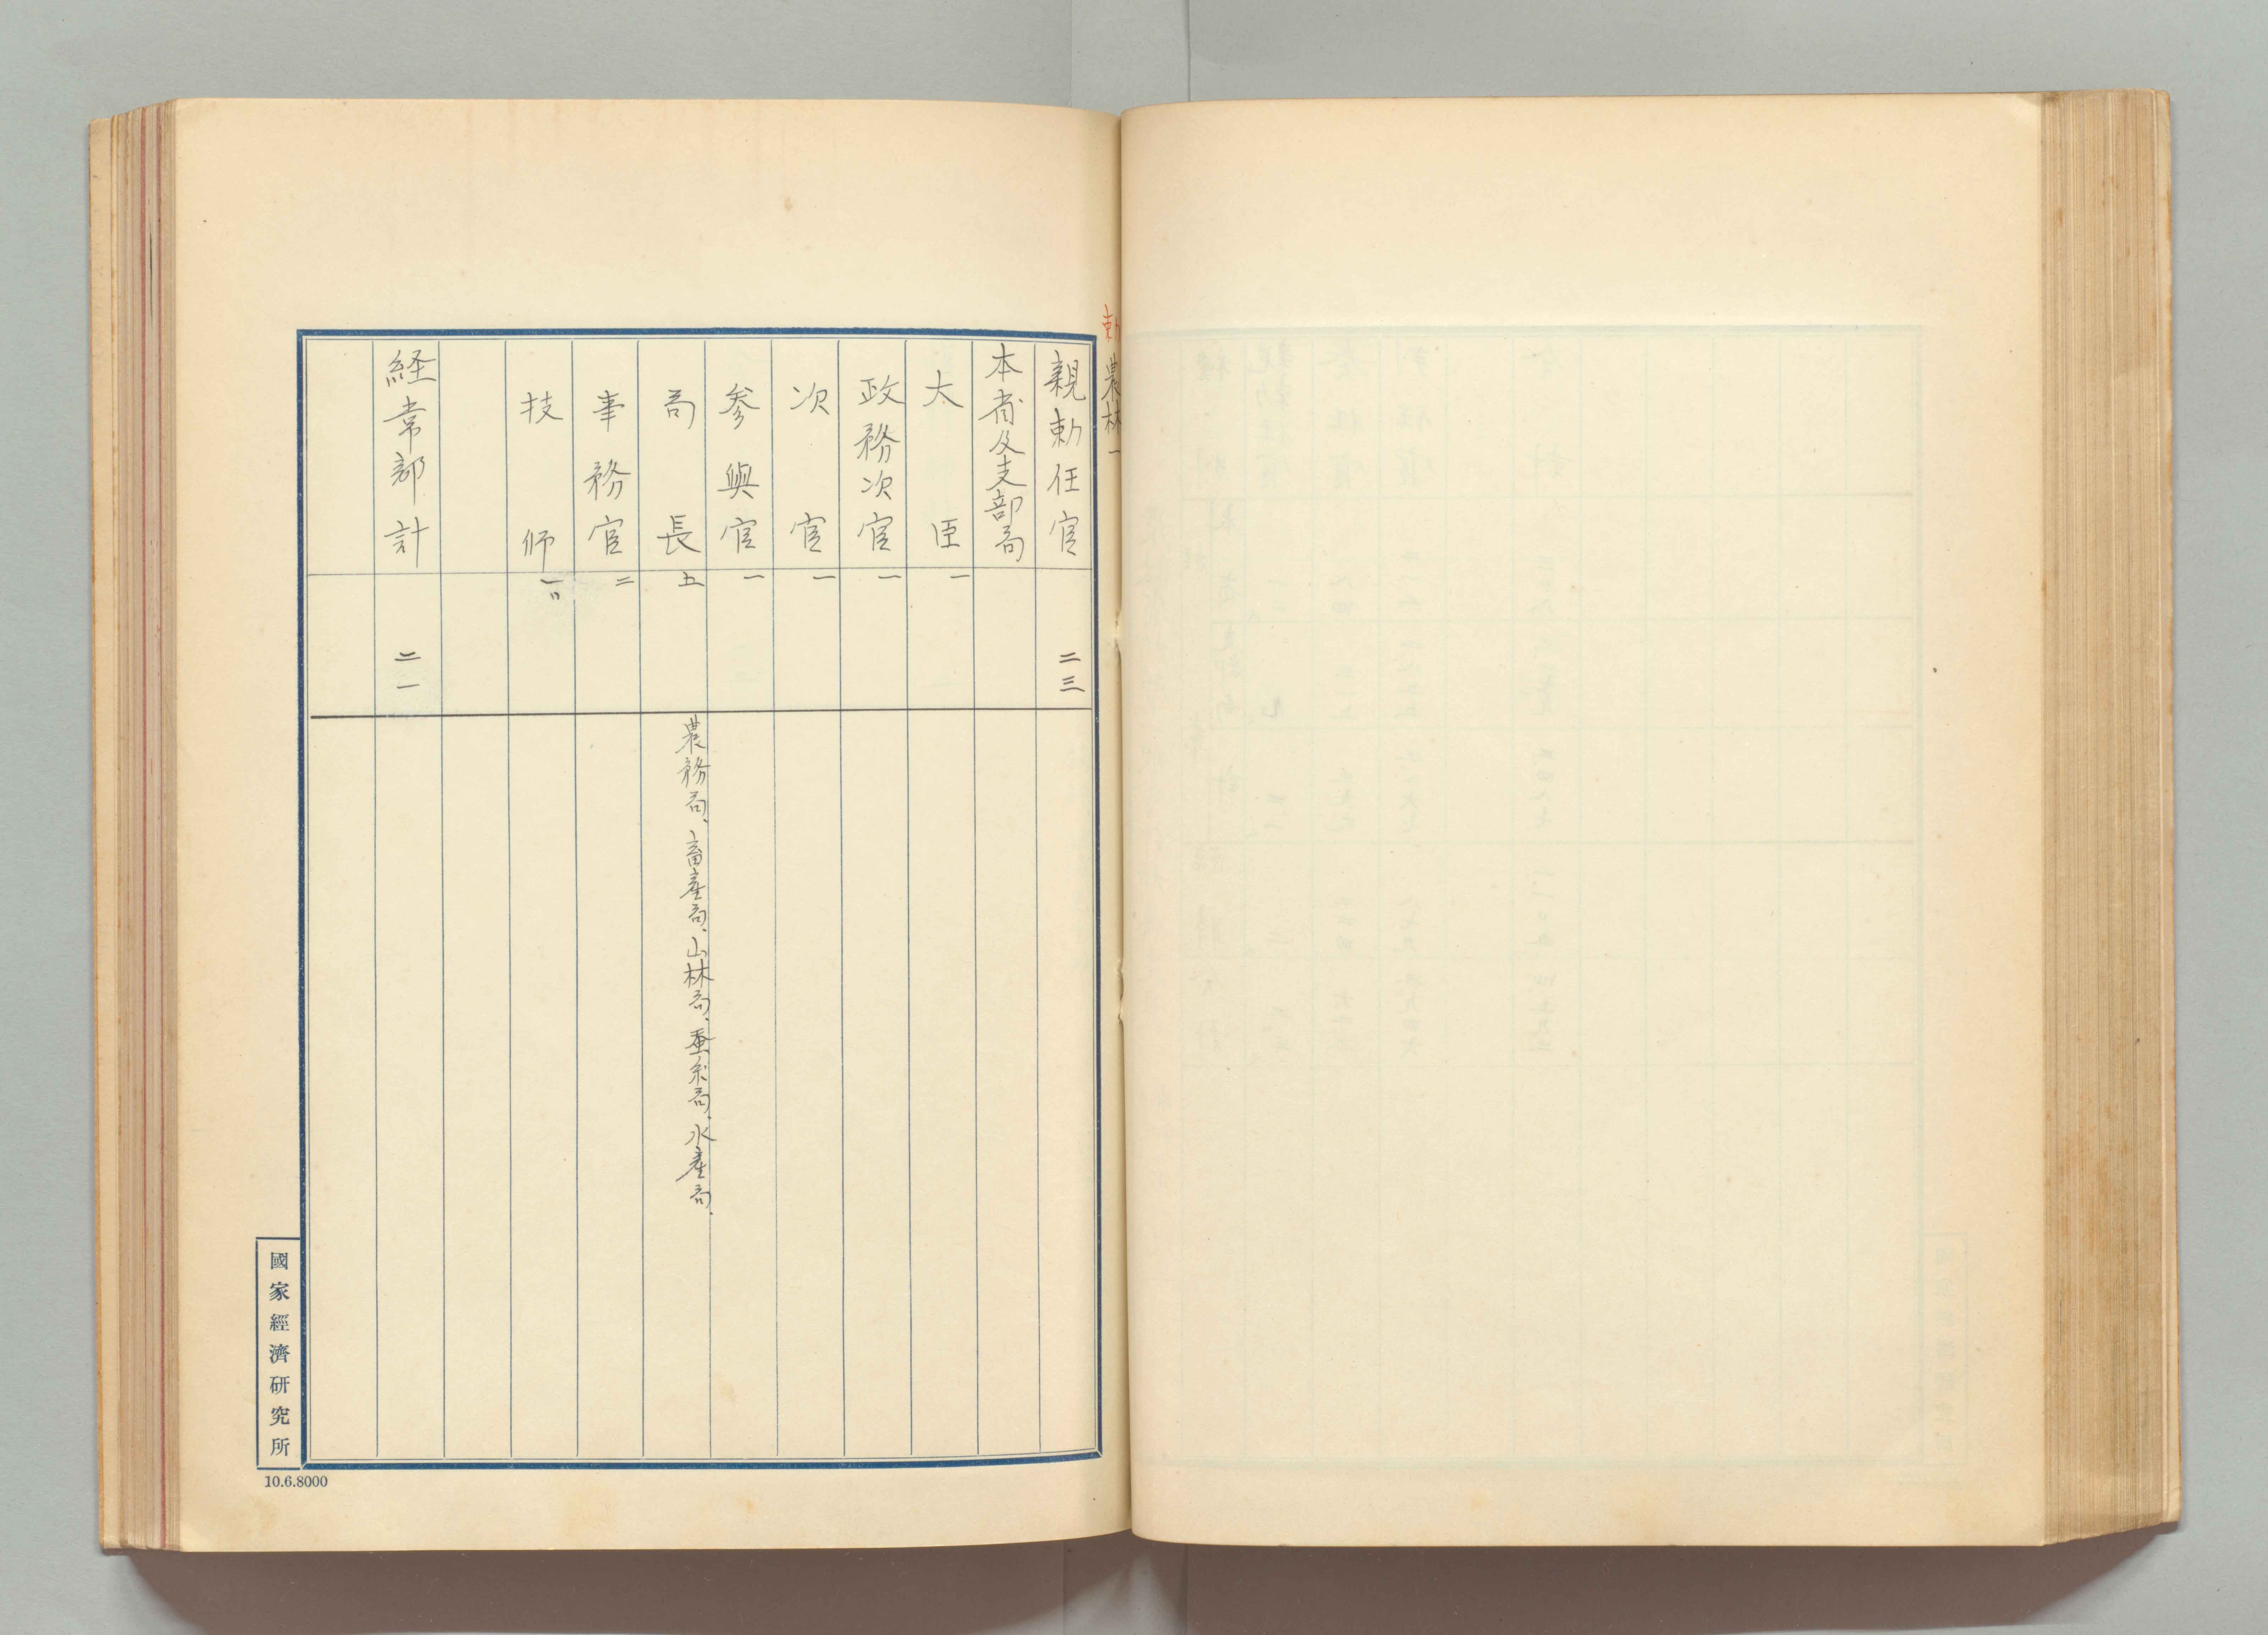 勅
農林一
親勅任官 二三
本省及支部局
大臣 一
政務次官 一
次官 一
参與官 一
局長 五 農務局、畜産局、山林局、蚕糸局、水産局、
事務官 二
技師 一〇
経常部計 二一
國家經濟研究所
10.6.8000